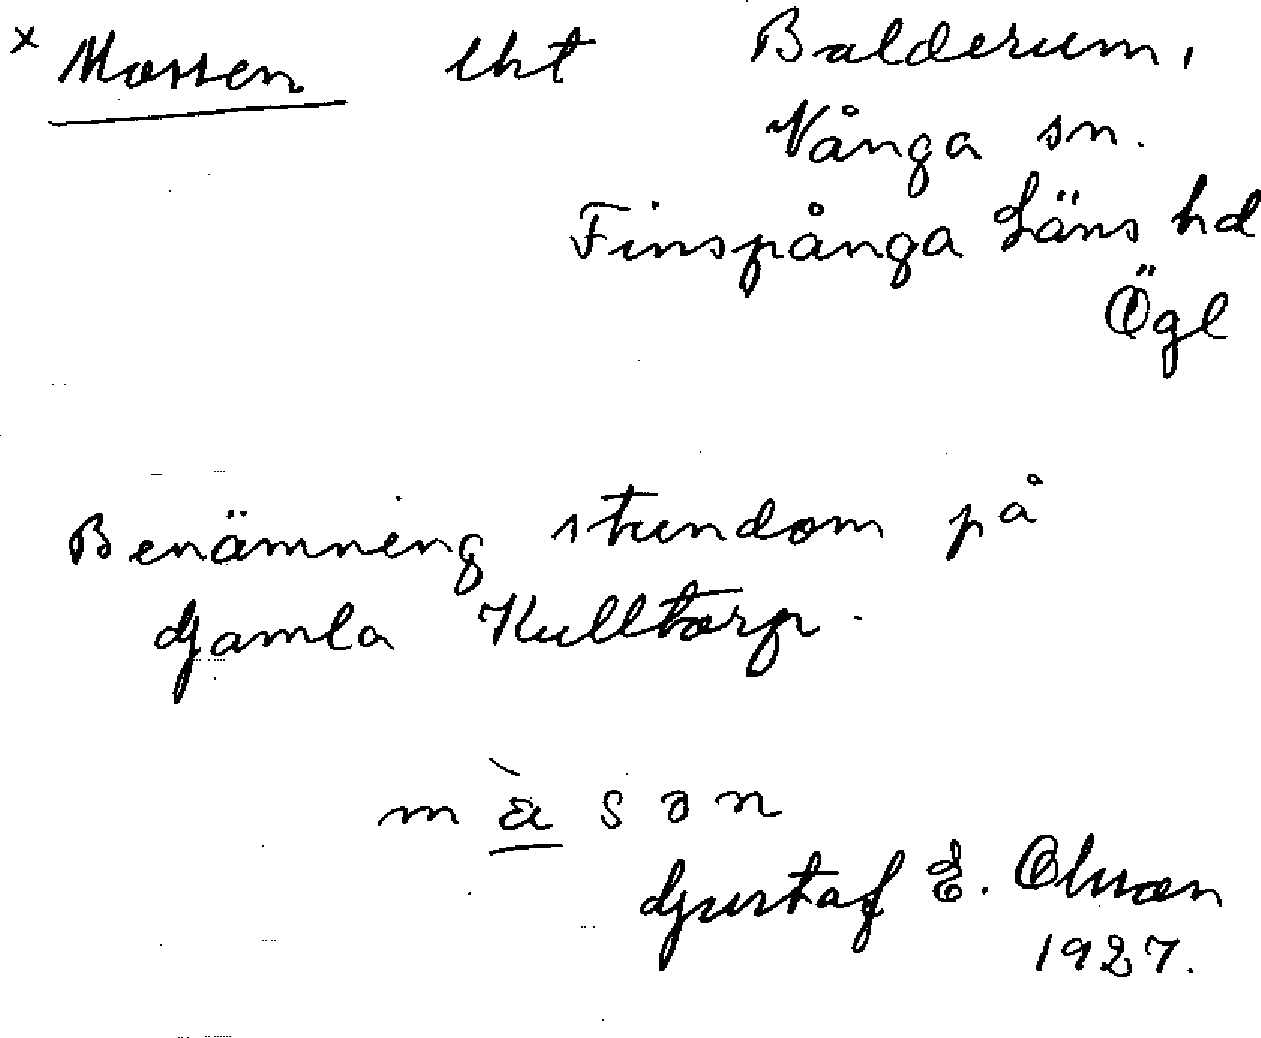 x Mossen lht Balderum,
Vånga sn.
Finspånga Läns hd
Ögl
Benämning stundom på
Gamla Kulltorp.
m s ə n
Gustaf E. Olsson
1927.